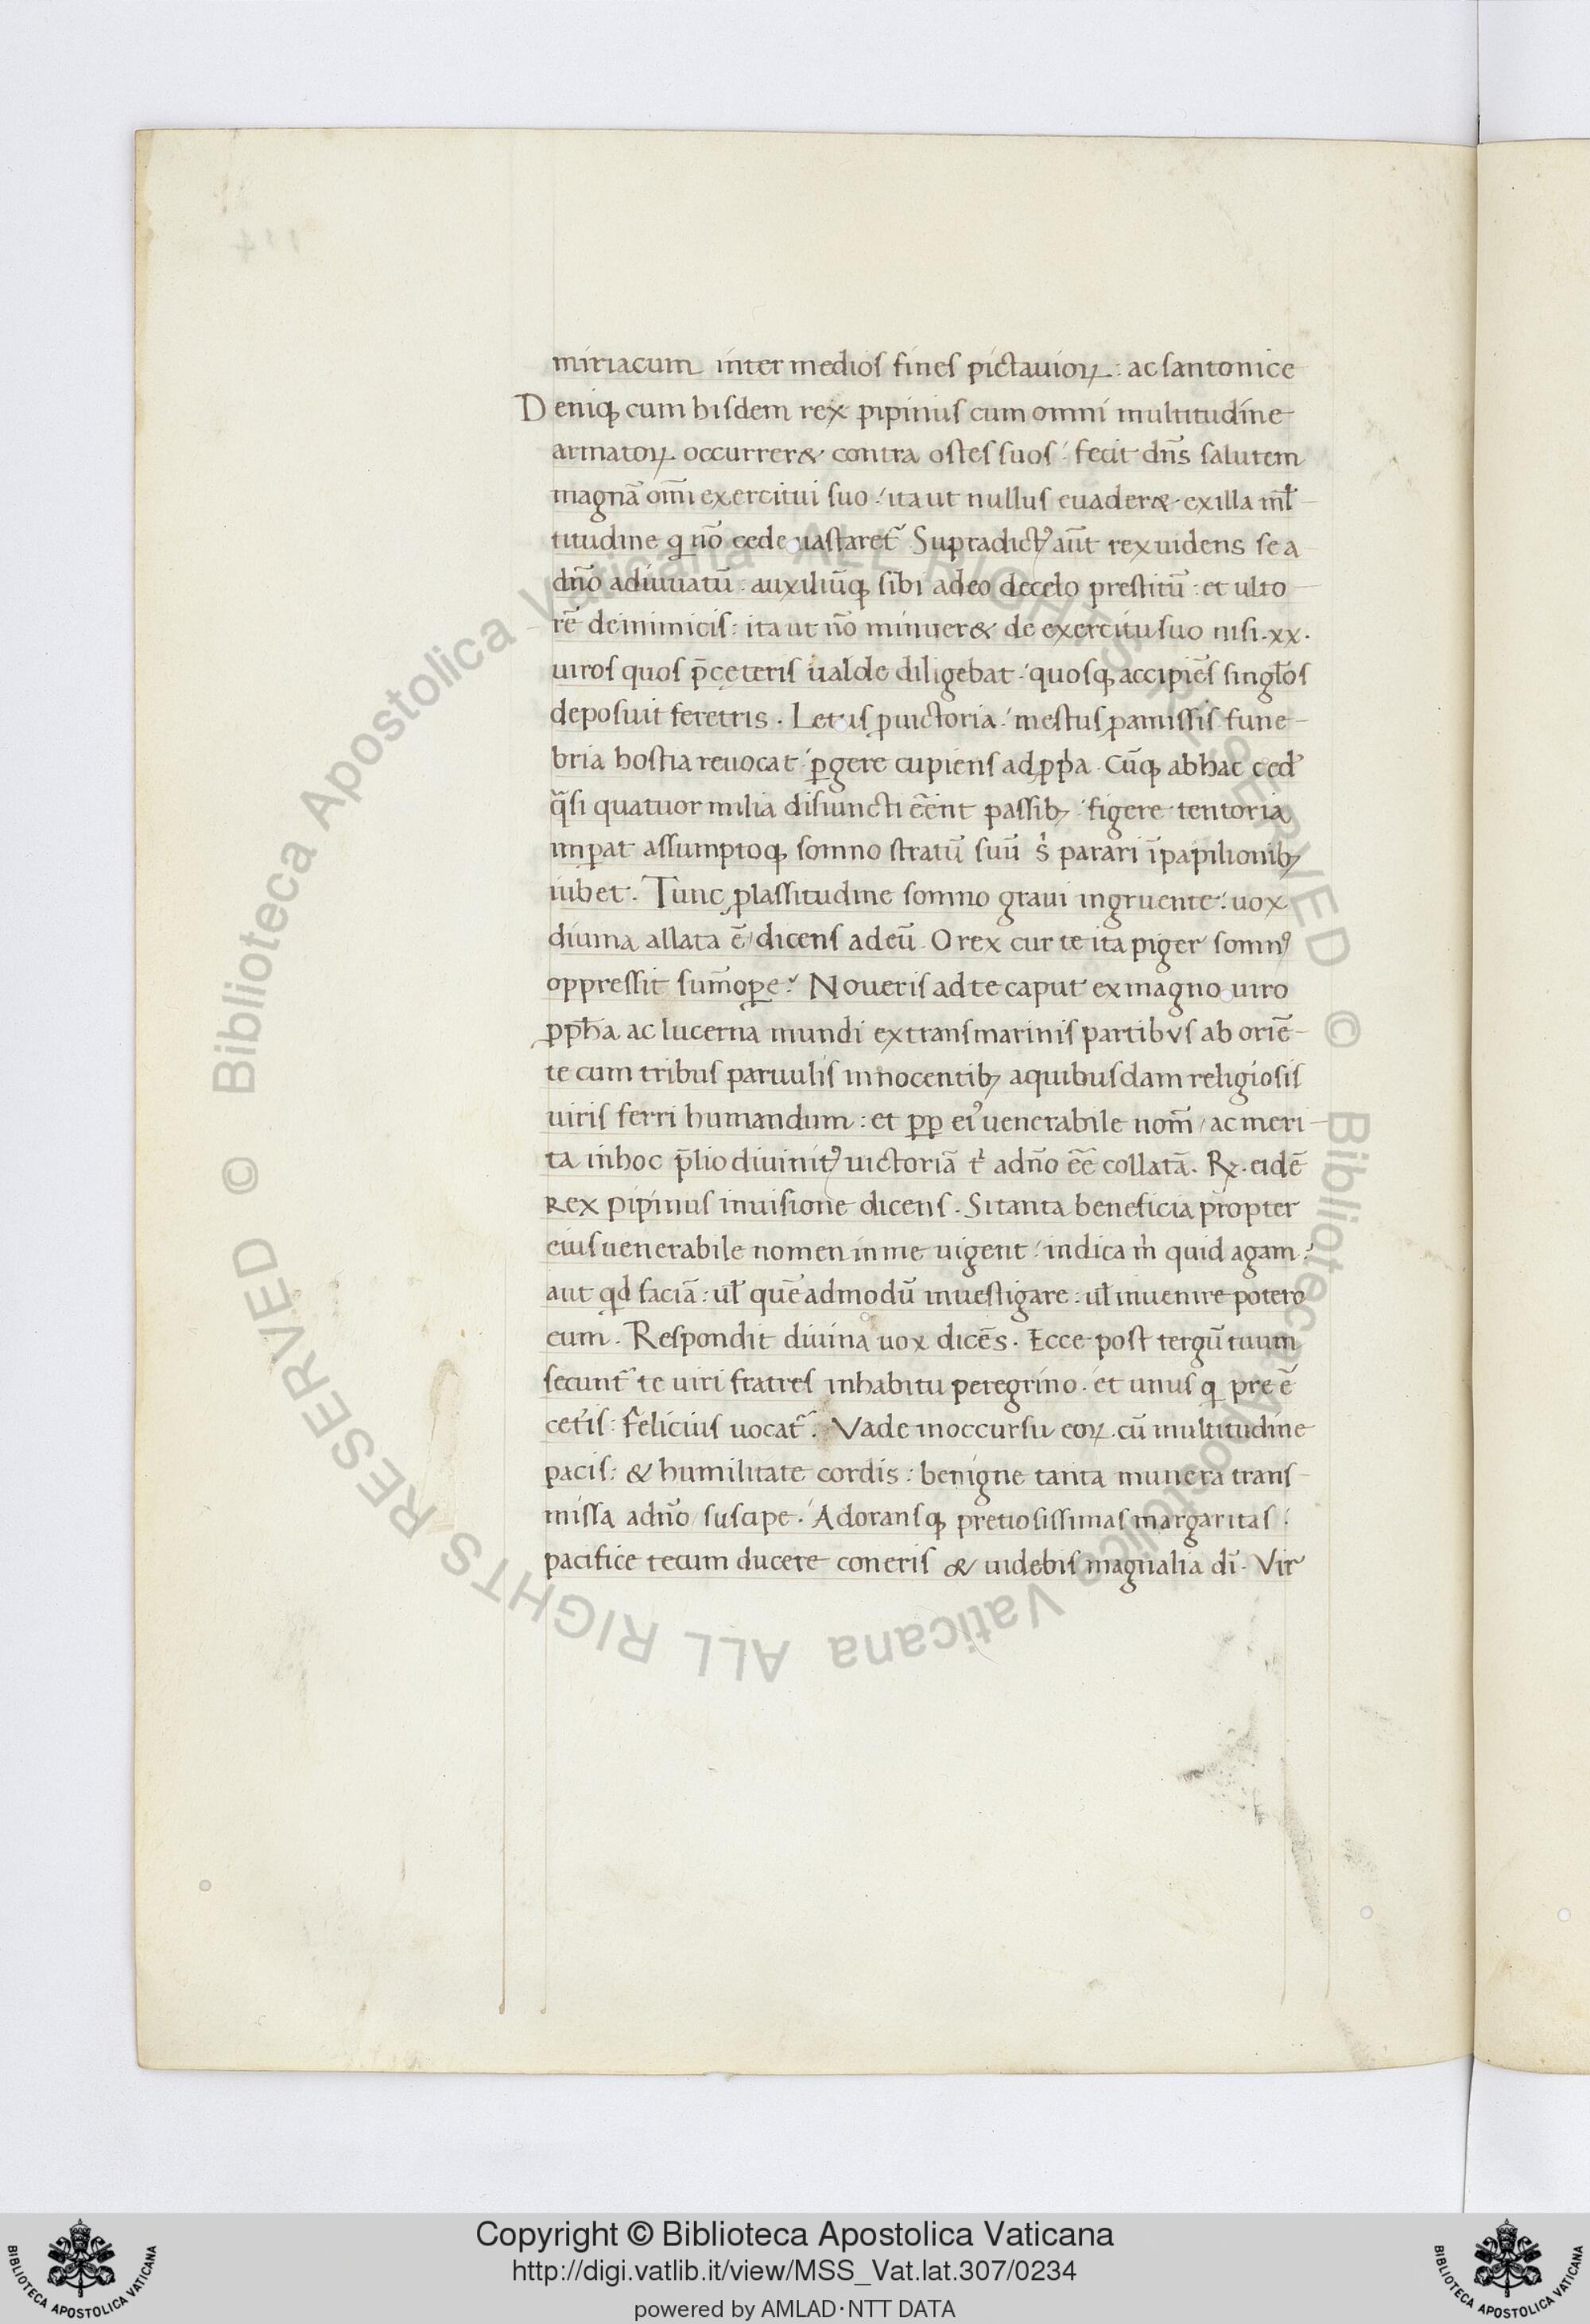 miriacum inter medios fines pictavioꝝ : ac santonice
Deniqꝫ cum hisdem rex pipinus cum omni multitudine
armatoꝝ occurrer& contra ostes suos : fecit dn̄s salutem
magnā om̄i exercitui suo : ita ut nullus evader& ex illa ml̄
titudine q nō cede vastaret᷑ Supradictꝰ aūt rex videns se a
dn̄o adiuvatū . auxiliūqꝫ sibi a deo de celo prestitū : et ulto
rē de inimicis : ita ut nō minuer& de exercitu suo nisi .xx.
viros quos p̄ ceteris valde diligebat : quosqꝫ accipiēs singl̄os
deposuit feretris . Letus ꝓ victoria : mestus ꝓ amissis fune-
bria hostia revocat : ꝑgere cupiens ad ꝓp̄a . Cūqꝫ ab hac ced᷑
q̄si quatuor milia disiuncti eēnt passibꝫ : figere tentoria
imꝑat assumptoqꝫ somno stratū suū s parari ī papilionibꝫ
iubet . Tunc ꝓ lassitudine somno gravi ingruente : vox
divina allata ē / dicens ad eū . O rex cur te ita piger somnꝰ
oppressit sum̄oꝑe ? Noveris ad te caput ex magno viro
ꝓph̄a ac lucerna mundi ex transmarinis partibus ab oriē-
te cum tribus parvulis innocentibꝫ a quibusdam religiosis
viris ferri humandum : et ꝓp eiꝰ venerabile nom̄ / ac meri-
ta in hoc p̄lio divinitꝰ victoriā t a dn̄o eē collatā . ℞ . eidē
Rex pipinus in visione dicens . Si tanta beneficia propter
eius venerabile nomen in me vigent : indica m quid agam :
aut qd faciā : ul̄ quēadmodū investigare : ul̄ invenire potero
eum . Respondit divina vox dicēs . Ecce post tergū tuum
secunt᷑ te viri fratres in habitu peregrino . et unus q pre ē
cet᷑is : felicius vocat᷑ . Vade in occursu eoꝝ . cū multitudine
pacis : & humilitate cordis : benigne tanta munera trans-
missa a dn̄o suscipe . Adoransqꝫ pretiosissimas margaritas :
pacifice tecum ducere coneris & videbis magnalia dī . Vir
© Biblioteca Apostolica Vaticana ALL RIGHTS RESERVED © Biblioteca Apostolica Vaticana ALL RIGHTS RESERVED
Copyright © Biblioteca Apostolica Vaticana
http://digi.vatlib.it/view/MSS_Vat.lat.307/0234
powered by AMLAD·NTT DATA
BIBLIOTECA APOSTOLICA VATICANA
BIBLIOTECA APOSTOLICA VATICANA